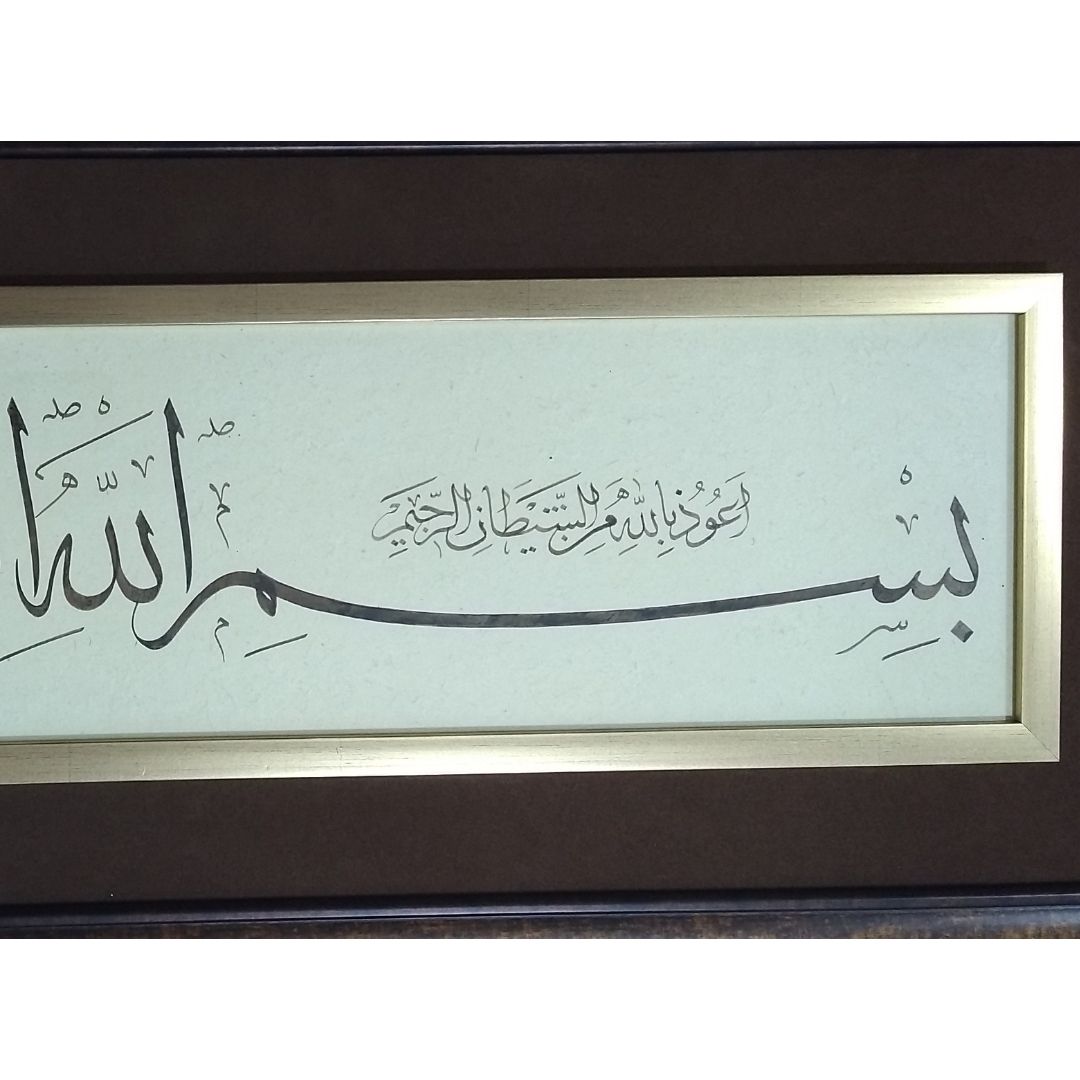 اَعُوذُ بِاللّٰهِ مِنَ الشَّيْطَانِ الرَّجِيمِ
بِسْمِ اللّٰهِ